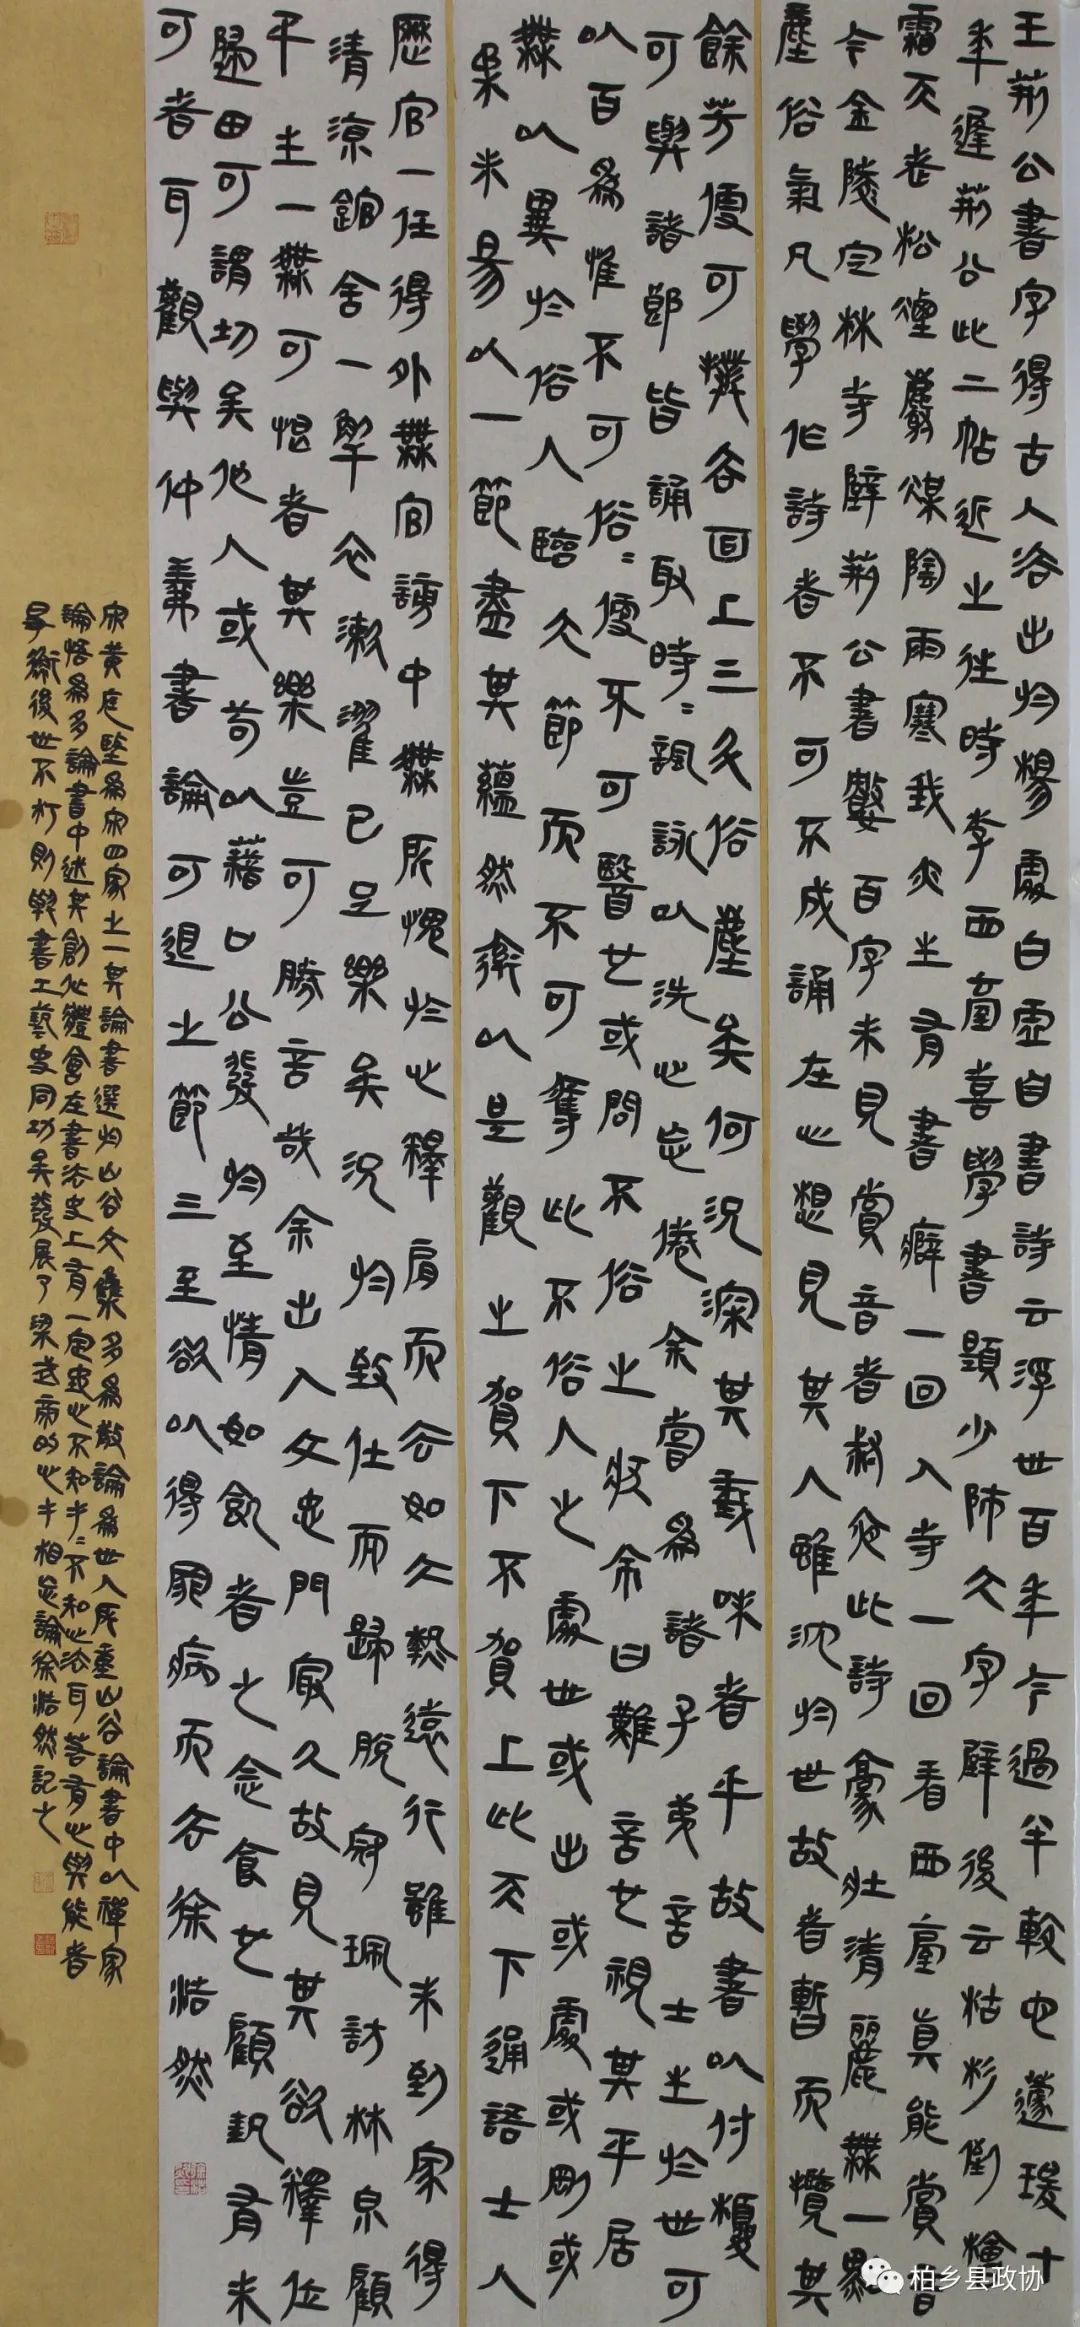 王荊公書字得古人法出於楊處白虛自書詩云浮世百年今過半較也蘧瑗十
年遲荊公此二帖近之往時李西臺喜學書題少師大字壁後云枯杉倒檜
霜天老松煙麝煤陰雨寒我亦生有書癖一回入寺一回看西臺真能賞音
今金陵定林寺壁荊公書數百字未見賞音者叔夜此詩豪壯清麗無一點
塵俗氣凡學作詩者不可不成誦在心想見其人雖沈於世故者暫而攬其
餘芳便可撲去面上三斗俗塵矣何況深其義味者乎故書以付榎
可與諸郎皆誦取時〻諷詠以洗心忘倦余嘗為諸子弟言士生於世可
以百為惟不可俗〻便不可醫也或問不俗之狀余曰難言也視其平居
無以異於俗人臨大節而不可奪此不俗人也處世或出或處或剛或
柔未易以一節盡其蘊然率以是觀之賀下不賀上此天下通語士人
歷官一任得外無官謗中無所愧於心釋肩而去如大熱遠行雖未到家得
清涼館舍一解衣漱濯已足樂矣況於致仕而歸脫冠珮訪林泉顧
平生一無可恨者其樂豈可勝言哉余出入文忠門最久故見其欲釋位
歸田可謂切矣他人或苟以藉口公發於至情如飢者之念食也顧勢有未
可者耳觀與仲義書論可退之節三至欲以得罪病而去徐浩然
宋黃庭堅為宋四家之一其論書選於山谷文集多為散論為世人所重山谷論書中以禪家
論悟為多論書中述其創作體會在書法史上有一定 心不知手〻不知心法耳若有心與能者
爭衡後世不朽則與書工藝史同功矣發展了梁武帝的心手相忘論徐浩然記之
柏乡县政协